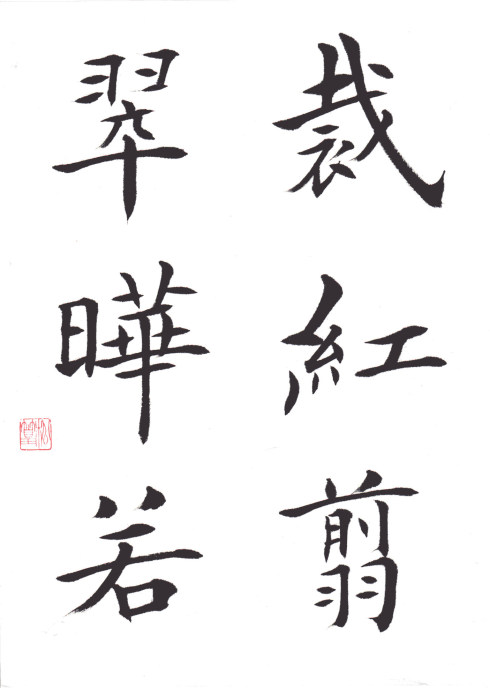 裁紅翦
翠曄若